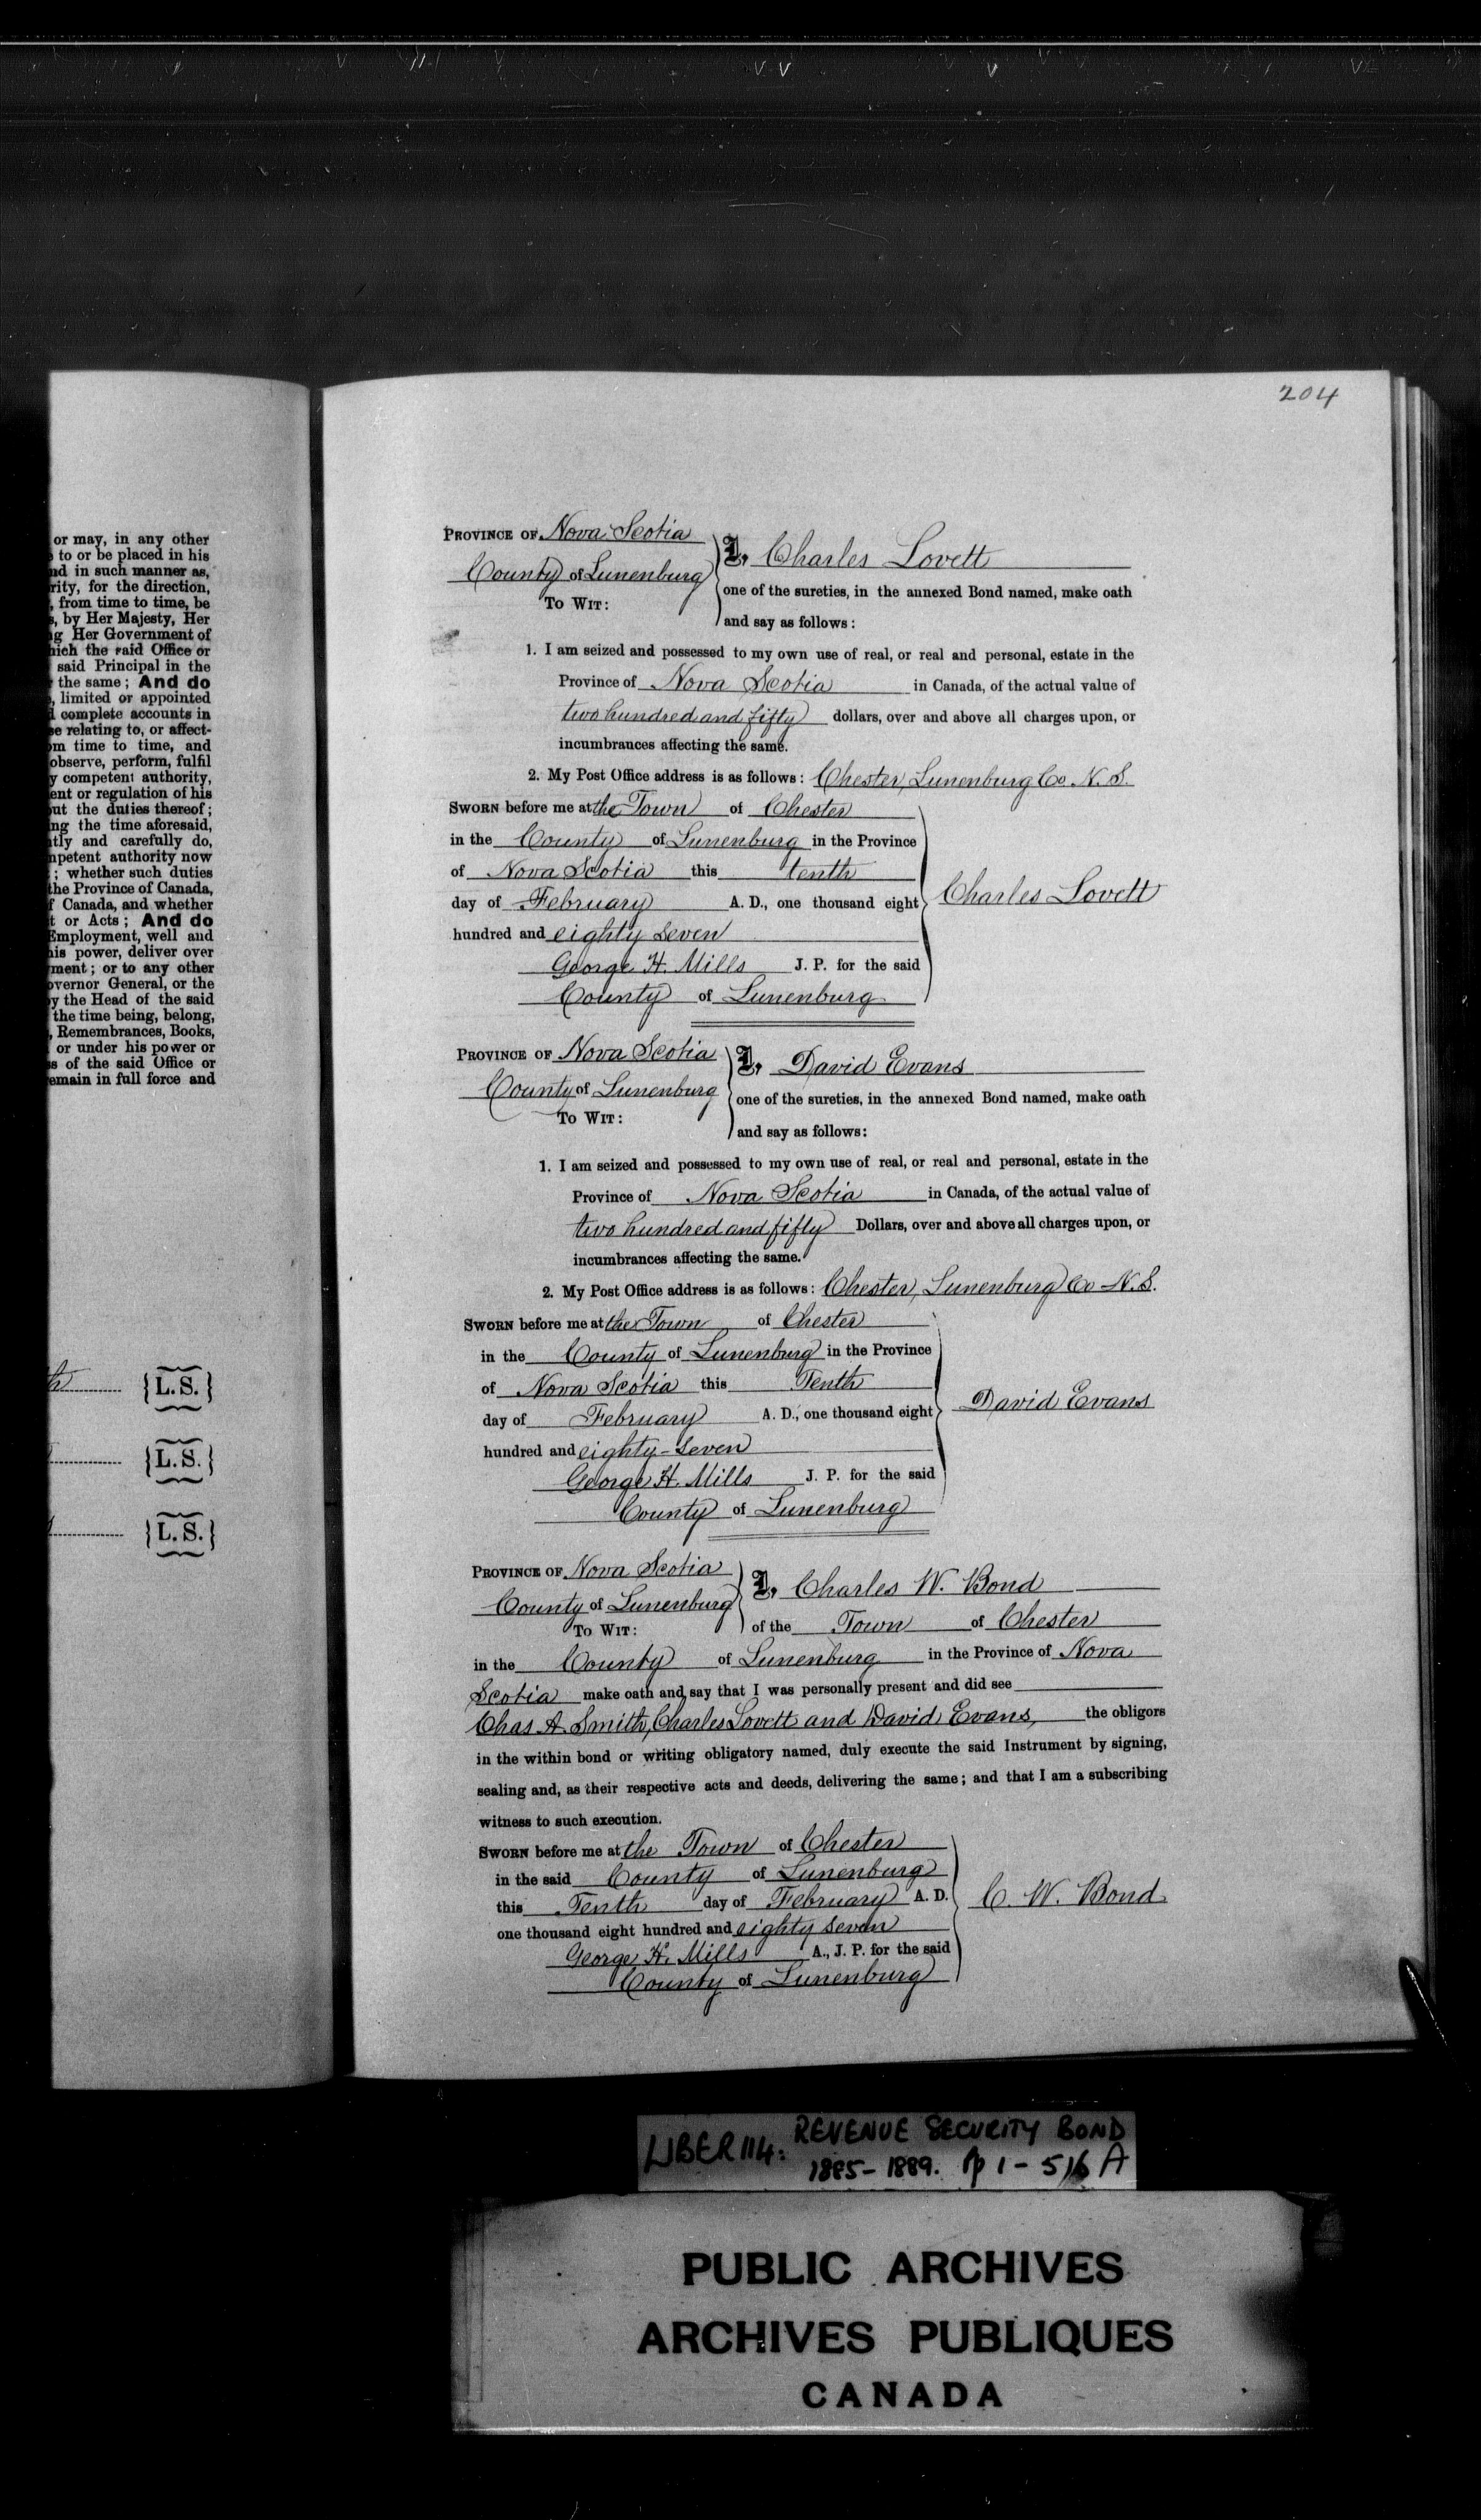 or may, in any other
to or be placed in his
and in such manner as,
rity, for the direction,
, from time to time, be
s, by Her Majesty, Her
ng Her Government of
hich the said Office or
said Principal in the
the same; And do
, limited or appointed
d complete accounts in
se relating to, or affect-
om time to time, and
observe, perform, fulfil
y competent authority,
ent or regulation of his
out the duties thereof;
ng the time aforesaid,
tly and carefully do,
mpetent authority now
; whether such duties
the Province of Canada,
f Canada, and whether
t or Acts; And do
Employment, well and
his power, deliver over
ment; or to any other
overnor General, or the
y the Head of the said
the time being, belong,
, Remembrances, Books,
or under his power or
s of the said Office or
remain in full force and
{L.S.}
{L.S.}
{L.S.}
204
PROVINCE OF Nova Scotia
County of Lunenburg
TO WIT:
I, Charles Lovett
one of the sureties, in the annexed Bond named, make oath
and say as follows:
1. I am seized and possessed to my own use of real, or real and personal, estate in the
Province of Nova Scotia in Canada, of the actual value of
two hundred and fifty dollars, over and above all charges upon, or
incumbrances affecting the same.
2. My Post Office address is as follows: Chester, Lunenburg Co. N.S.
SWORN before me at the Town of Chester
in the County of Lunenburg in the Province
of Nova Scotia this tenth
day of February A. D., one thousand eight
hundred and eighty seven
George H. Mills J. P. for the said
County of Lunenburg
Charles Lovett
PROVINCE OF Nova Scotia
County of Lunenburg
TO WIT:
I, David Evans
one of the sureties, in the annexed Bond named, make oath
and say as follows:
1. I am seized and possessed to my own use of real, or real and personal, estate in the
Province of Nova Scotia in Canada, of the actual value of
two hundred and fifty Dollars, over and above all charges upon, or
incumbrances affecting the same.
2. My Post Office address is as follows: Chester, Lunenburg Co N.S.
SWORN before me at the Town of Chester
in the County of Lunenburg in the Province
of Nova Scotia this Tenth
day of February A. D., one thousand eight
hundred and eighty-seven
George H. Mills J. P. for the said
County of Lunenburg
David Evans
PROVINCE OF Nova Scotia
County of Lunenburg
TO WIT:
I, Charles W. Bond
of the Town of Chester
in the County of Lunenburg in the Province of Nova
Scotia make oath and say that I was personally present and did see
Chas A. Smith, Charles Lovett and David Evans, the obligors
in the within bond or writing obligatory named, duly execute the said Instrument by signing,
sealing and, as their respective acts and deeds, delivering the same; and that I am a subscribing
witness to such execution.
SWORN before me at the Town of Chester
in the said County of Lunenburg
this Tenth day of February A. D.
one thousand eight hundred and eighty seven
George H. Mills A., J. P. for the said
County of Lunenburg
C. W. Bond
LIBER 114: REVENUE SECURITY BOND
1885-1889. pp 1-516 A
PUBLIC ARCHIVES
ARCHIVES PUBLIQUES
CANADA